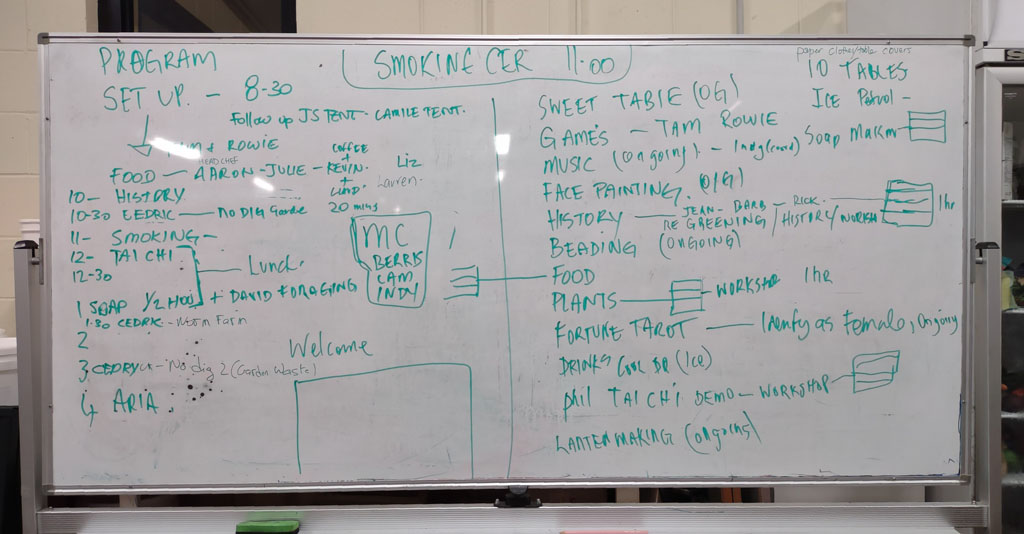 PROGRAM
SMOKINE CER 11.00
SET UP. - 8-30
Follow up JS TENT - CAMILE TENT.
TAM + ROWIE
HEAD CHEF
FOOD - AARON - JULIE - KEVIN.
COFFEE
+
+
LIND.
20 mins
Liz
Lauren.
10 - HISTORY
10-30 CEDRIC - NO DIG Garde
11 - SMOKING -
12 - TAI CHI
12-30
Lunch.
1 SOAP 1/2 HOU + DAVID FORAGING
1.30 CEDRIC - Worm Farm
2
3 CEDRYCK - No dig 2 (Garden Waste)
4 ARIA.
MC
BERRIS
CAM
INDY
Welcome
paper clothes/table covers
10 TABLES
Ice Patrol -
SWEET TABLE (OG)
GAMES - TAM ROWIE
Soap Makin
MUSIC (Ongoing) - Indy (Coord)
FACE PAINTING. (OIG)
HISTORY - JEAN - BARB - RICK.
RE GREENING / HISTORY / WORKSH
1hr
BEADING (ONGOING)
FOOD
PLANTS - WORKSHOP 1hr
FORTUNE TAROT - Idenfy as Female, Ongoing
DRINKS COOL BO (Ice)
phil TAI CHI DEMO - WORKSHOP
LANTENMAKING (Ongoing)